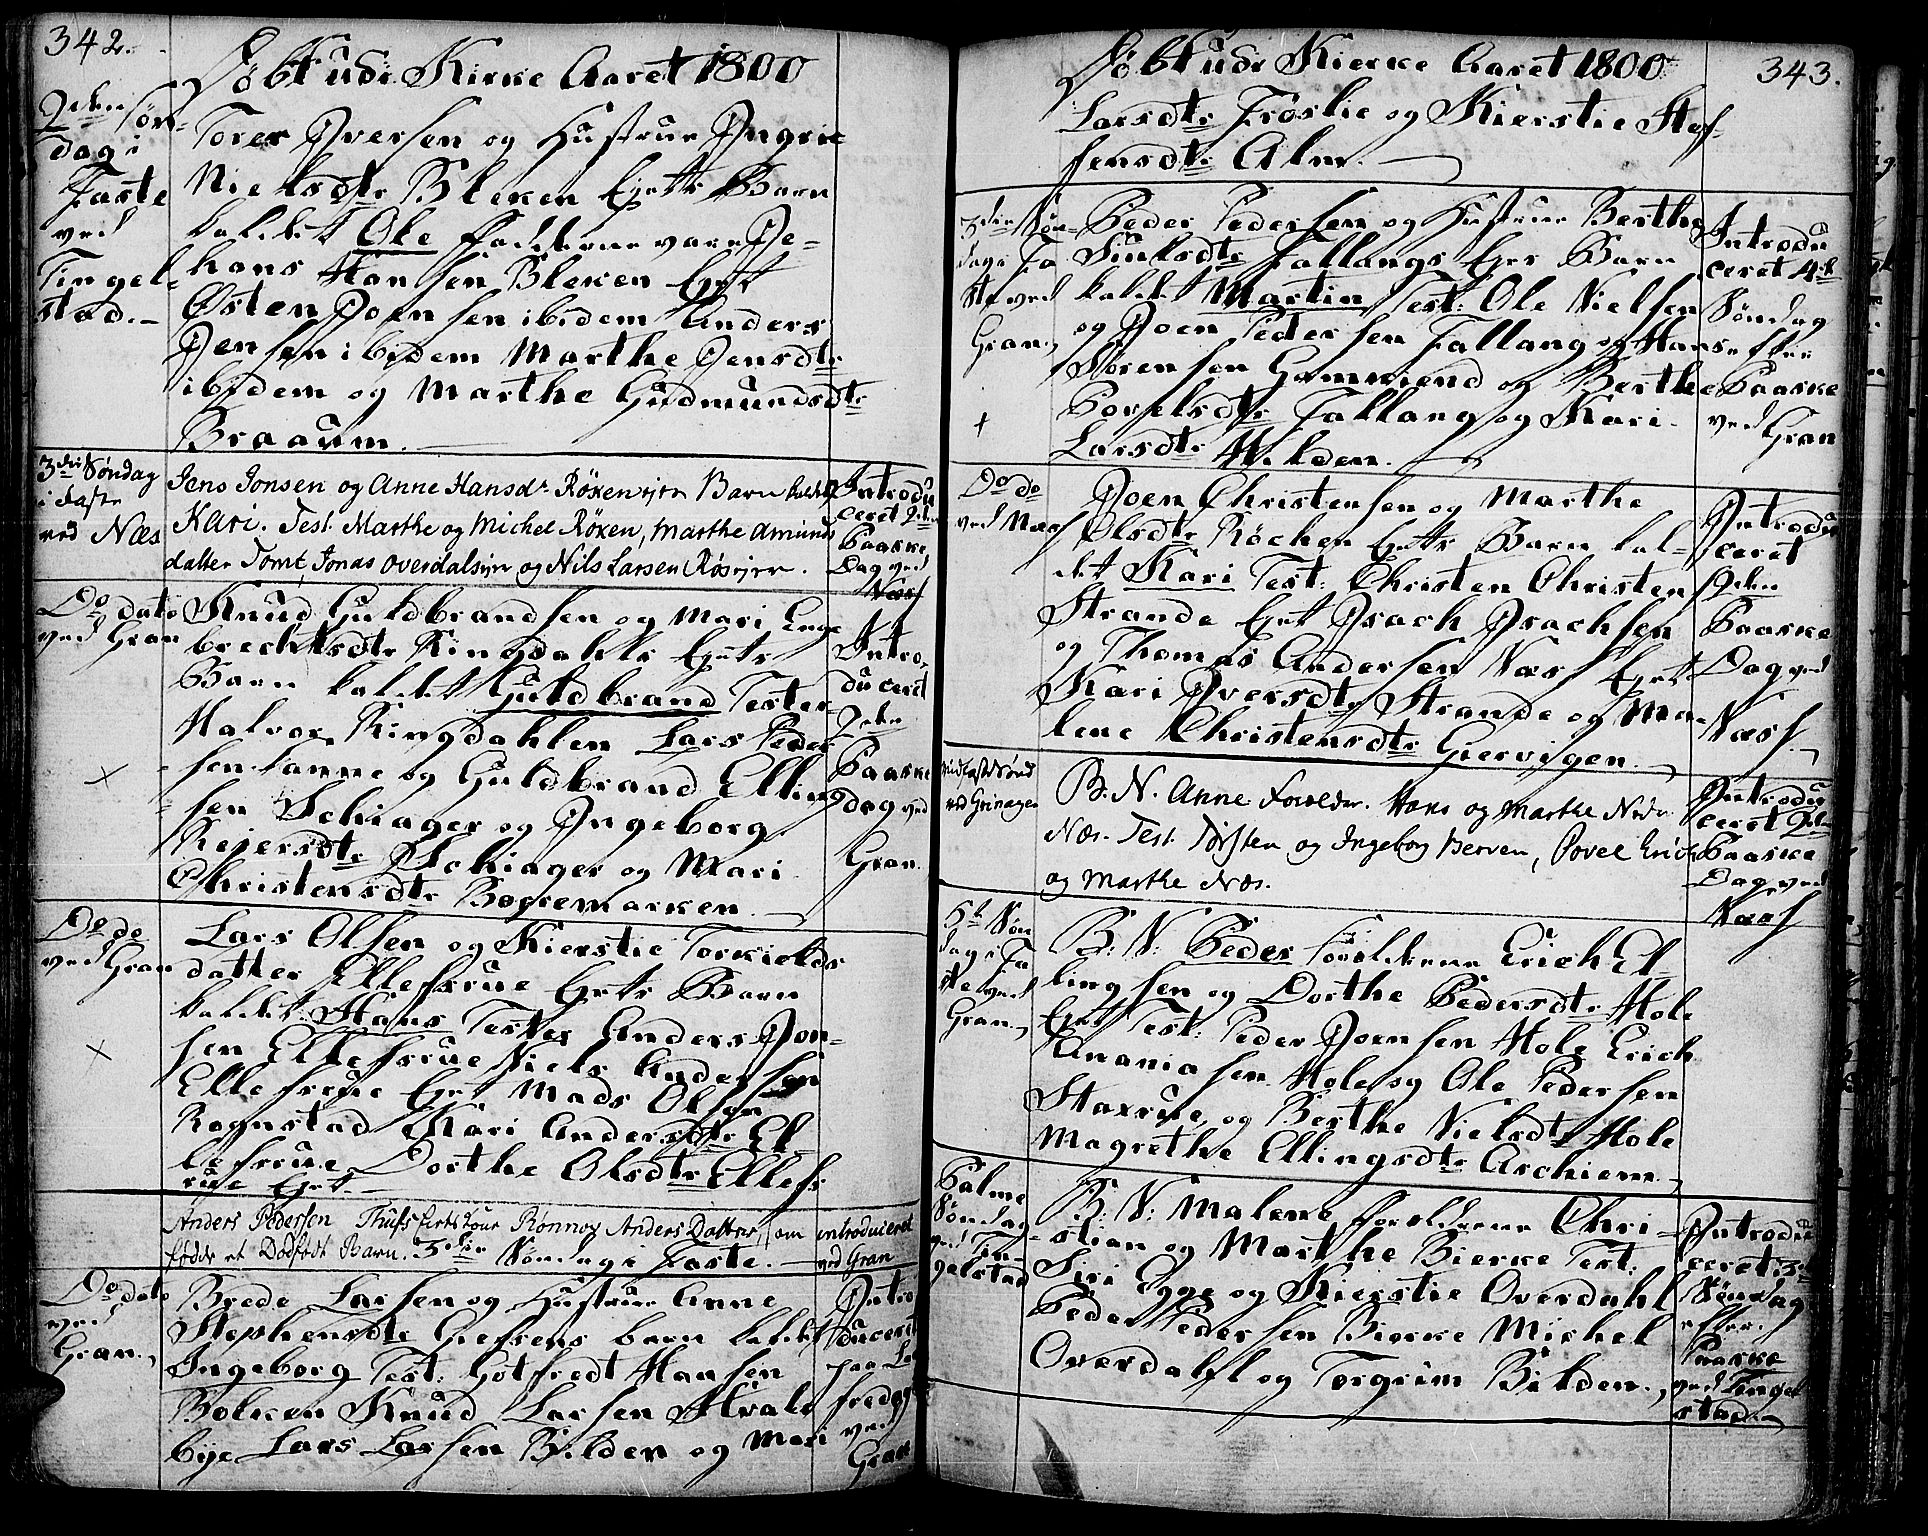 342.
Döbt udi Kirke Aaret 1800
2den Søn-
dag i
Faste
ved
Tingel-
stad.
Torer Iversen og Hustrue Ingrie
Nielsdtr Bleken Ejets Barn
kaldet Ole fadderne vare Jo-
hans Hansen Bleken Ejet
Østen Joensen ibidem Anders
Jensen ibidem Marthe Jensdtr
ibidem og Marthe Gudmundsdtr
Braaum.
3die Søndag
i Faste
ved Næs
Jens Jonsen og Anne Hansdr Röxenejer Barn kaldet
Kari. Test. Marthe og Michel Röxen, Marthe Amunds
datter Tomt Jonas Overdalsejer og Nils Larsen
Introdu
ceret 2den
Paaske
Dag ved
Næss
Do dato
ved Gran
Knud Guldbrandsen og Mari Enge
brechtsdtr Ringdahls Ejets
Barn kaldet Guldbrand Tester
Halvor Ringdahlen Lars Peder
sen Sanne og Guldbrand Elling
sen Schiager og Ingeborg
Reiersdtr Schiager og Mari
Christensdtr Bogremarken.
Intro-
duceret
2den
Paaske
dag ved
Gran.
Do do
ved Gran
Lars Olsen og Kierstie Torkields
datter Ellefsrue Ejets Barn
kaldet Hans Tester Anders Jon-
sen Ellefsrue Niels Andersen
Ellefsrue Ejet Mads Olsen
Rognstad Mari Andersdtr El-
lefsrue Dorthe Olsdtr Ellefs
rue Ejet.
Anders Pederson Thufs Rønnoy Anders Datter, som
fødde et Dødfødt Barn. 3die Søndag i Faste.
introduceret
ved Gran
Do dato
ved
Gran.
Brede Larsen og Hustrue Anne
Stephensdtr Gefrens barn kaldet
Ingeborg Test: Gotfredt Hansen
Bolken Knud Larsen Hvals
bye Lars Larsen Bilden og Mari
Intro
duceret
paa Lan
fredag
ved
Gran
343.
Döbt udi Kierke Aaret 1800
Larsdtr Frøslie og Kierstie Stef-
fensdtr Alm.
3die Søn-
dag i Fa
ste ved
Gran.
Peder Pedersen og Hustrue Berthe
Fallangs Ejer Barn
kaldet Martin Test: Ole Nielsen
og Joen Pedersen Fallang og Hans
Sørensen Gammend og Berthe
Povelsdtr Fallang og Kari
Larsdtr Hilden.
Introdu
ceret 4de
Søndag
efter
Paaske
ved Gran
Do do
ved Næss
Joen Christensen og Marthe
Olsdtr Röchen Ejets Barn kal-
det Kari Test: Christen Christensen
Strande Ejet Isach Isachsen
og Thomas Andersen Næss Ejet
Kari Iversdtr Strande og Ma-
lene Christensdtr Giervigen.
Introdu
ceret
2den
Paaske
Dag ved
Næss
Midfaste Sønd
ved Grinager
B. N. Anne Foreldre. Hans og Marthe Nedre
Næs. Test. Torsten og Ingeborg Berven, Povel Erich
og Marthe Næs.
Introdu
ceret 2den
Paaske
Dag ved
Næss
5te Søn
dag i Fa
ste ved
Gran.
B: N: Peder Forældrene Erich El-
lingsen og Dorthe Pedersdtr Hole
Ejet Test: Peder Joensen Hole Erich
Ananiasen Hole og Ole Pedersen
Staxrue, og Berthe Nielsdtr Hole
Magrethe Ellingsdtr Aschiem.
Palme
Søndag
ved Tin
gelstad
B: N: Malene forældrene Chri-
stian og Marthe Bierke Test:
Siri Egge og Kierstie Overdahl
Peder Pedersen Bierke Michel
Overdahl og Torgrim Bilden.
Introdu
ceret 3die
Søndag
efter
Paaske
ved Tingel
stad.